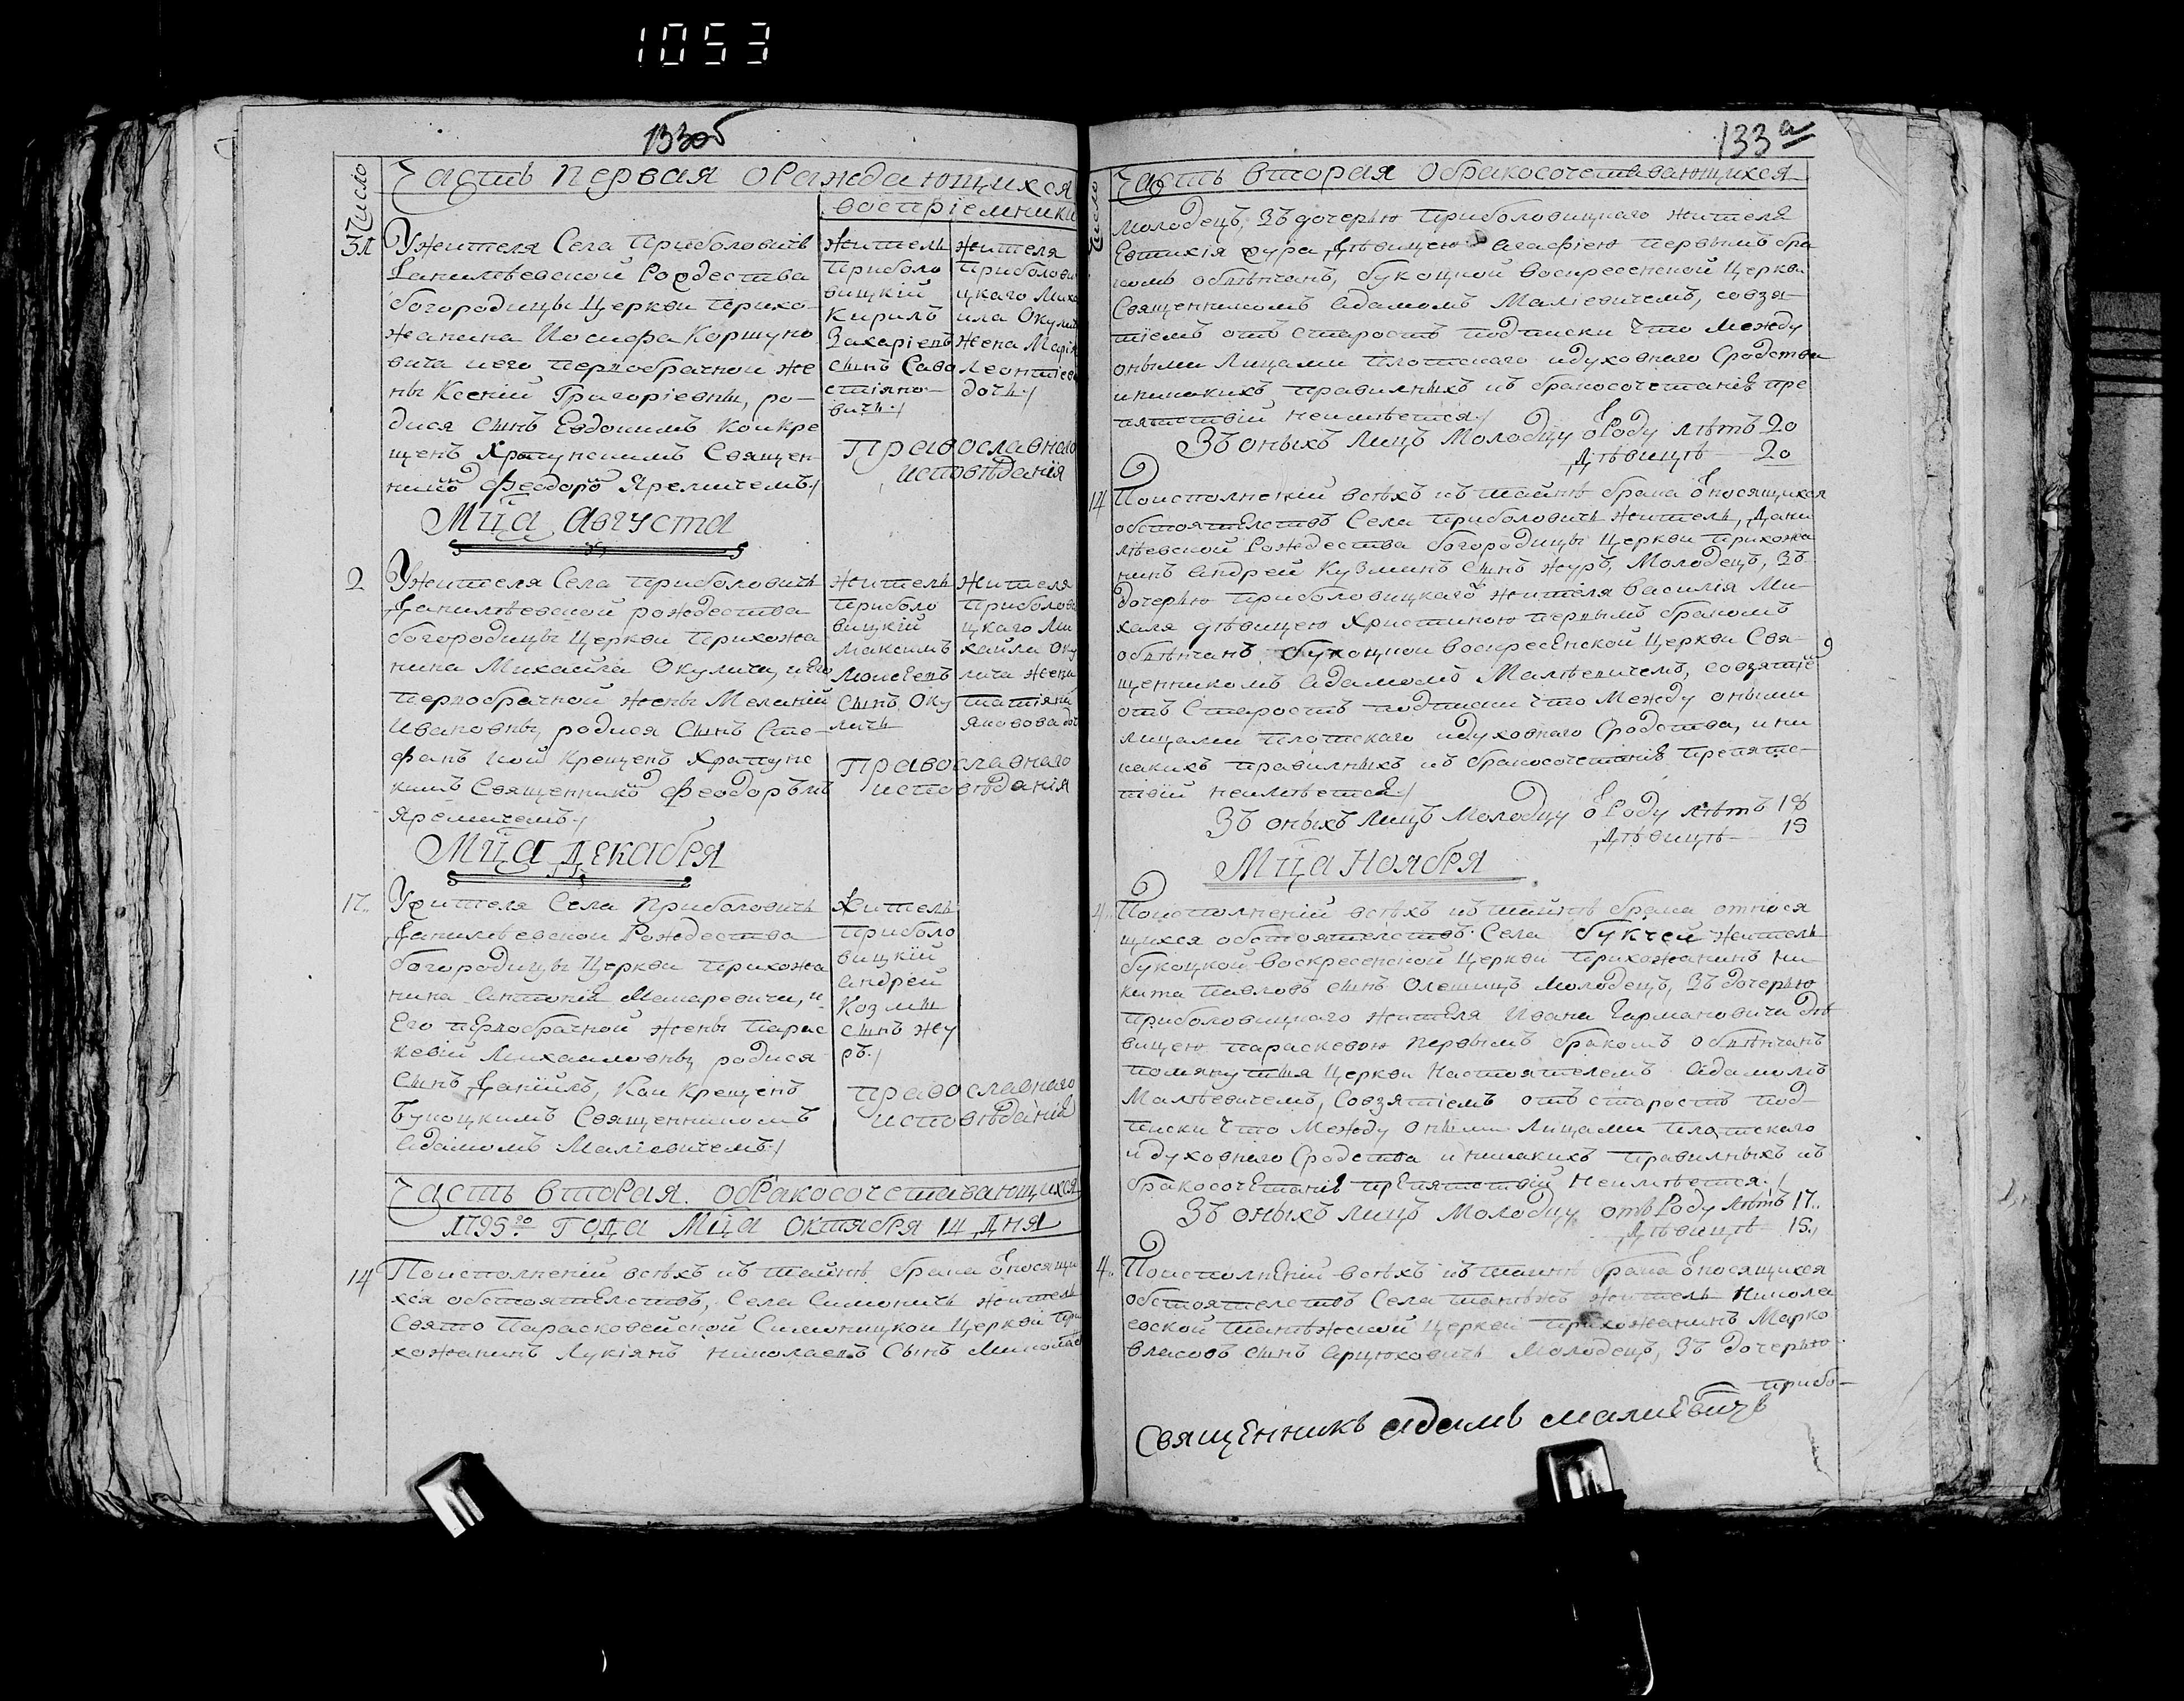 1053
133об
Число
Часть первая ораждающихся
воспріемники
31
Ужителя Села Приболовичъ
Данилѣевской Рождества
богородицы Церкви прихо-
жанина Иосифа Коршуно
вича иего первобрачной же
ны Ксеніи Григоріевны, ро-
дися сынъ Евдокимъ кои кре
щенъ Хропунскимъ Священ-
никомъ Феодоромъ Яремичемъ
житель
приболо
вицкій
Кирилъ
Захаріевъ
сынъ Сава
стіяно-
вичъ
жителя
приболови
цкаго Миха
ила Окулича
жена Марія
Леонтіева
дочь
Православнаго
исповѣданія
Мца августа
2
Ужителя Села приболовичъ
Данилѣевской рождества
богородицы Церкви прихожа
нина Михаила Окулича, и его
первобрачной жены Меланіи
Ивановны, родися сынъ Сте-
фанъ кой крещенъ Храпунс
кимъ Священникомъ Феодоромъ
Яремичемъ
житель
приболо
вицкій
максимъ
Моисеевъ
сынъ Оку
личъ
жителя
приболови
цкаго Ми
хайла Оку
лича жена
татіяна
яковова доч
Православнаго
исповѣданія
Мца декабря
17
Ужителя Села Приболовичъ
Данилѣевской Рождества
богородицы Церкви прихожа
нина Антонія Макаревича, и
Его первобрачной жены Парас
кевіи Михаиловны, родися
сынъ Даніилъ, кои крещенъ
Букоцкимъ Священникомъ
адамомъ Маліевичемъ
житель
приболо
вицкій
андрей
Козмы
сынъ жу
ръ
православнаго
исповѣданія
Часть вторая. обракосочетавающихся
1795го года Мца Октября 14 дня
14
Поисполненіи всѣхъ къ тайнѣ брака относящи
хся обстоятелствъ, Села Симоничъ житель
Свято Парасковейской Симоницкой Церкви при
хожанинъ Лукіянъ николаевъ сынъ
133а
Число
Часть вторая обракосочетавающихся
молодецъ, зъ дочерью приболовицкаго жителя
Евтихія жура дѣвицею агафіею первымъ бра
комъ обвѣнчанъ, букоцкой воскресенской Церкви
Священникомъ адамомъ Маліевичемъ, совзя-
тіемъ отъ старостъ подписки что между
оными лицами плотскаго идуховнаго сродства
иникакихъ правилныхъ къ бракосочетанію пре
пятствій неимѣется
Зъ оныхъ лицъ Молодцу отроду лѣтъ 20
дѣвицѣ 20
14
Поисполненіи всѣхъ къ тайнѣ брака относящихся
обстоятелствъ Села приболовичъ житель, Дани
лѣевской Рождества богородицы Церкви прихожа
нинъ андрей Кузминъ сынъ журъ, молодецъ, зъ
дочерью приболовицкаго жителя василія Ми-
халя дѣвицею Христиною первымъ бракомъ
обвѣнчанъ букоцкой воскресенской Церкви Свя-
щенникомъ адамомъ Малѣевичемъ, совзятіемъ
отъ старостъ подписки что между оными
лицами плотскаго идуховнаго сродства, и ни
какихъ правилныхъ къ бракосочетанію препятс-
твій неимѣется
Зъ оныхъ лицъ Молодцу отроду лѣтъ 18
дѣвицѣ 19
Мца Ноября
4
Поисполненіи всѣхъ къ тайнѣ брака относя
щихся обстоятелствъ. Села букчей житель
букоцкой воскресенской Церкви прихожанинъ ни
кита павловъ сынъ Олешицъ молодецъ, зъ дочерью
приболовицкаго жителя Ивана Гармановича дѣ
вицею параскевою первымъ бракомъ обвѣнчанъ
помянутыя Церкви Настоятелемъ адамомъ
Малѣевичемъ, совзятіемъ отъ старостъ под-
писки что между оными лицами плотскаго
идуховнаго сродства и никакихъ правилныхъ къ
бракосочетанію препятствій неимѣется
Зъ оныхъ лицъ Молодцу отъ роду лѣтъ 17
дѣвицѣ
4
Поисполненіи всѣхъ къ тайнѣ брака относящихся
обстоятелствъ Села танѣжъ житель никола
евской танѣжской Церкви прихожанинъ Марко
власовъ сынъ арцюховичъ Молодецъ, зъ дочерью
прибо-
Священникъ адамъ малиевичъ